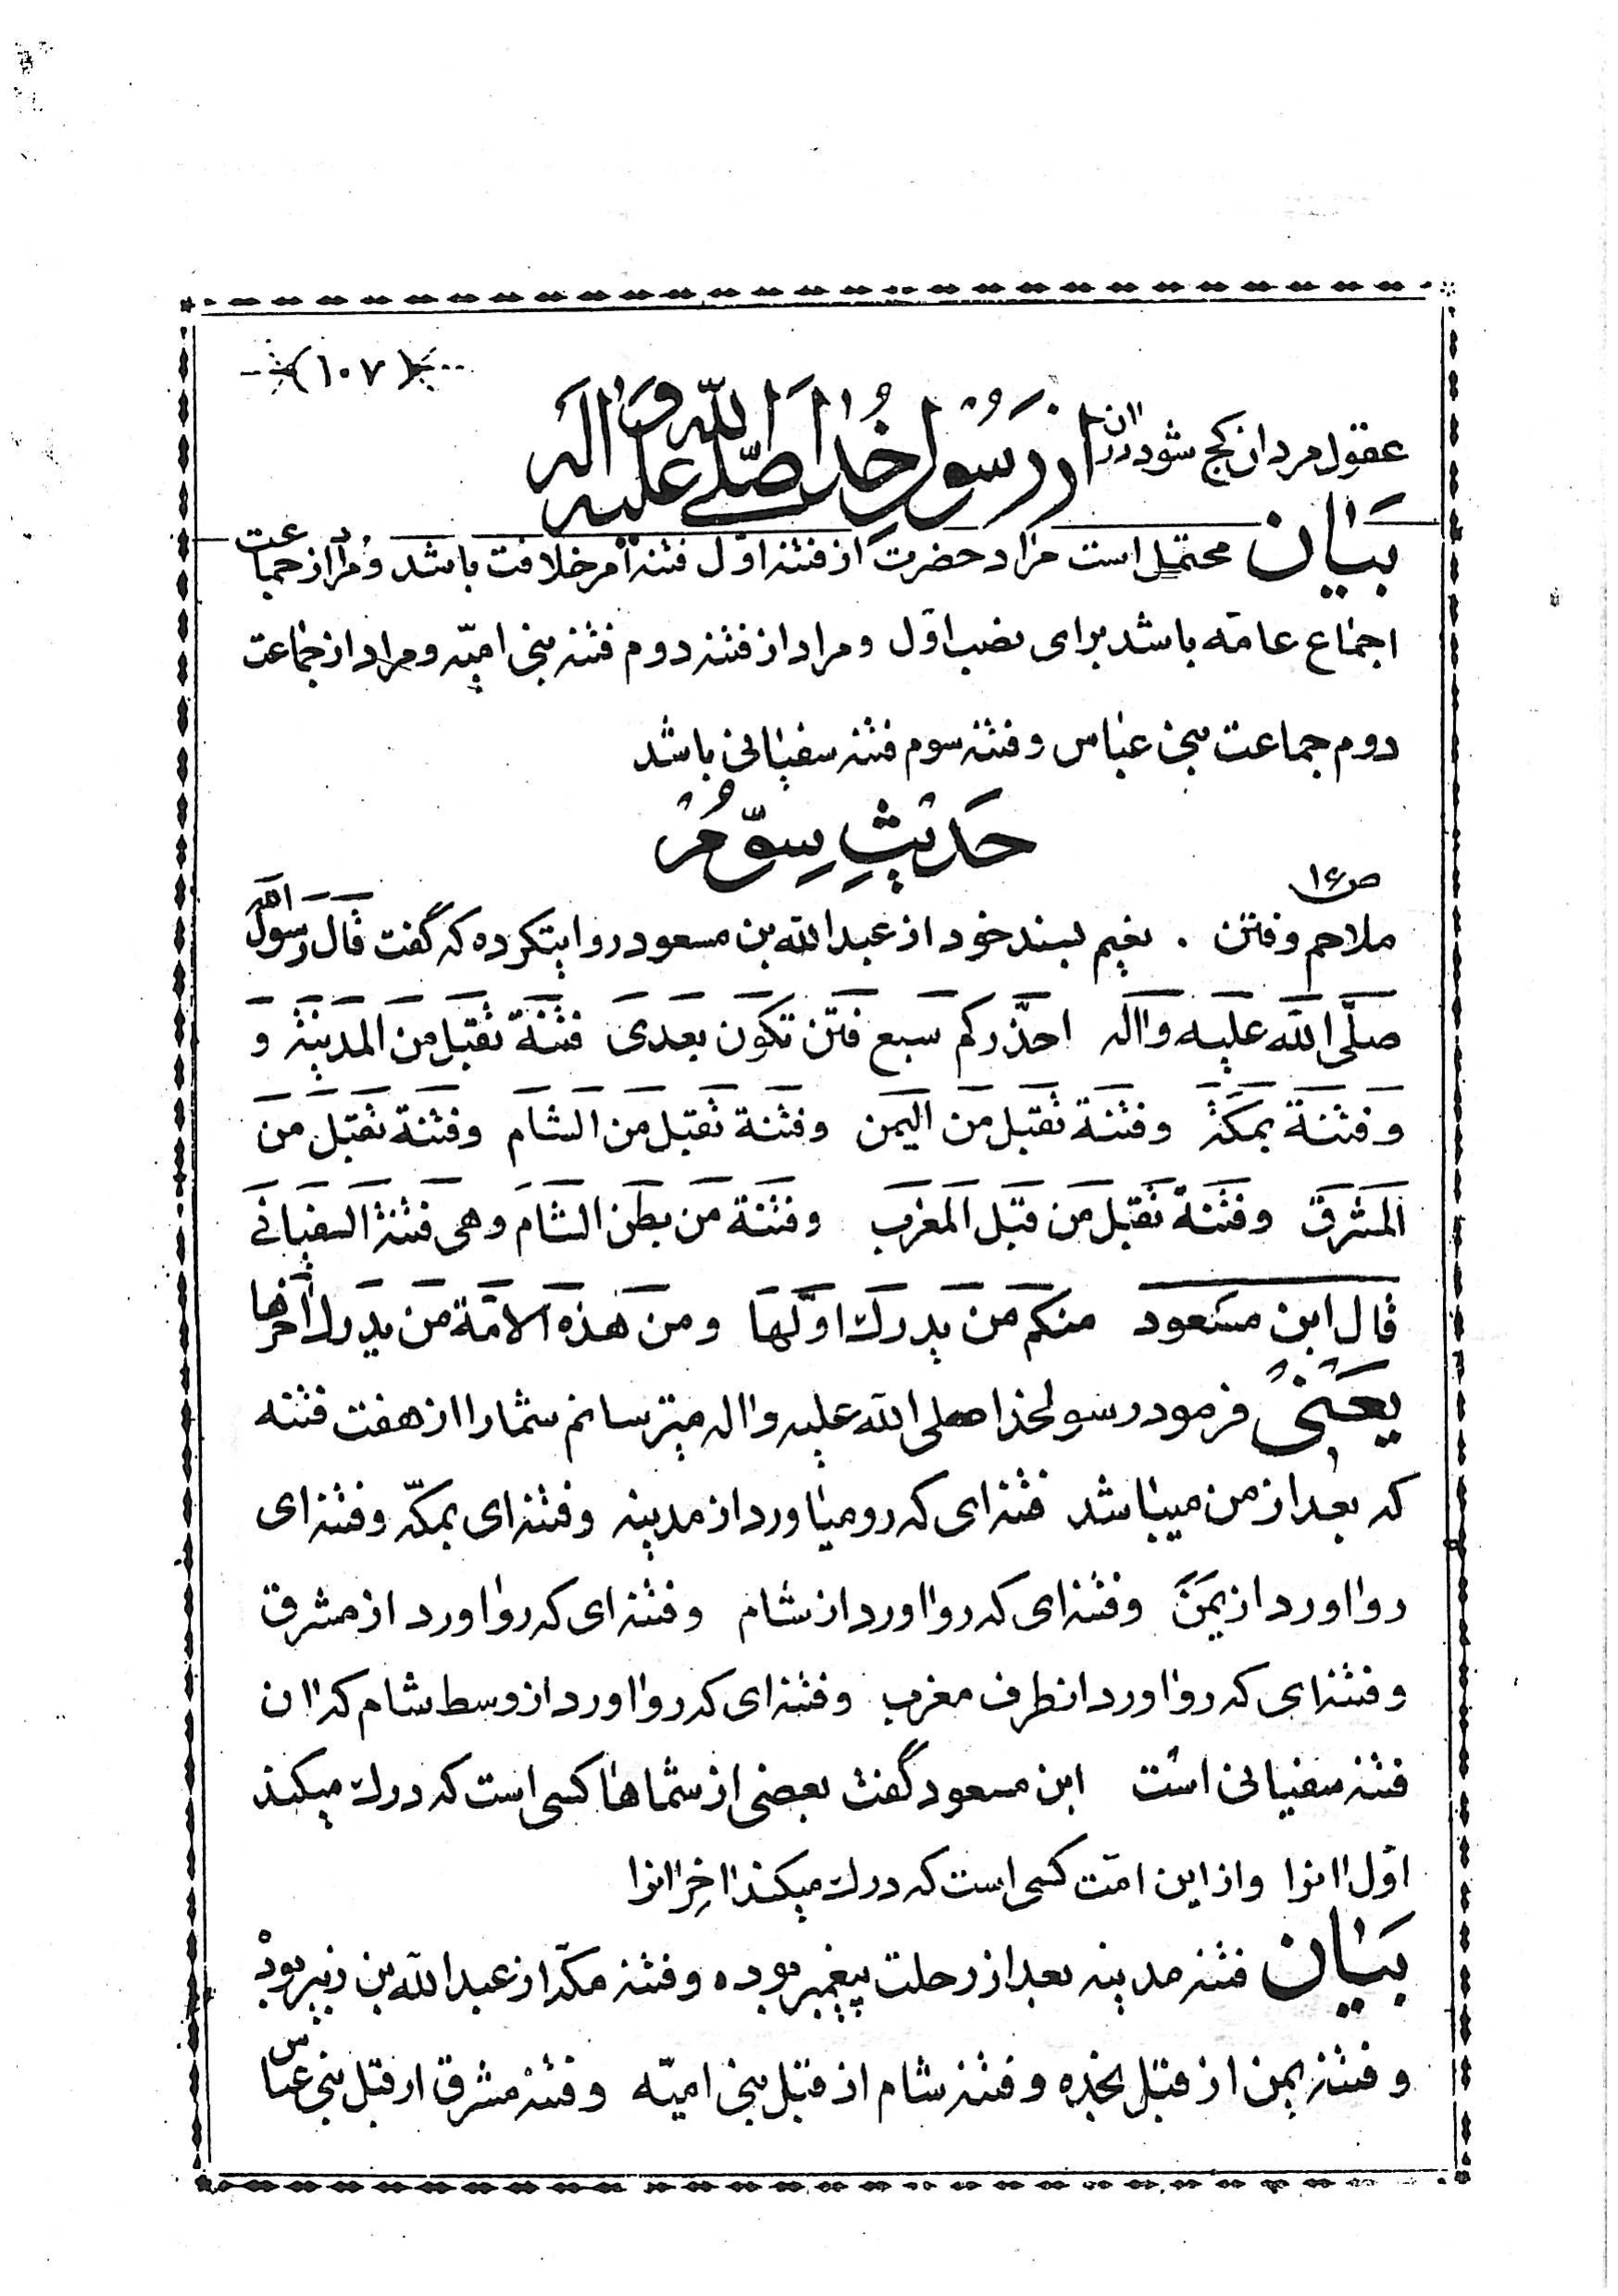 (۱۰۷)
عقول مردان کج شود در ان از رسول خدا صلی الله علیه و اله
بیان محتمل است مراد حضرت از فتنه اوّل فتنه امر خلافت باشد و مراد از جماعت
اجماع عامّه باشد برای نصب اوّل و مراد از فتنه دوم فتنه بنی امیّه و مراد از جماعت
دوم جماعت بنی عباس و فتنه سوم فتنه سفیانی باشد
حدیث سوّم
ص ۱۶
ملاحم و فتن . نعیم بسند خود از عبدالله بن مسعود روایتکرده که گفت قال رسول الله
صلّی الله علیه و اله احذّرکم سبع فتن تکون بعدی فتنة تقبل من المدینة و
و فتنة بمکّة و فتنة تقبل من الیمن و فتنة تقبل من الشام و فتنة تقبل من
المشرق و فتنة تقبل من قبل المغرب و فتنة من بطن الشام و هی فتنة السفیانی
قال ابن مسعود منکم من یدرک اوّلها و من هذه الامّة من یدرک اخرها
یعنی فرمود رسولخدا صلی الله علیه و اله میترسانم شما را از هفت فتنه
که بعد از من میباشد فتنه ای که رو میاورد از مدینه و فتنه ای بمکّه و فتنه ای
رو اورد از یمن و فتنه ای که رو اورد از شام و فتنه ای که رو اورد از مشرق
و فتنه ای که رو اورد از طرف مغرب و فتنه ای که رو اورد از وسط شام که ان
فتنه سفیانی است ابن مسعود گفت بعضی از شماها کسی است که درک میکند
اوّل انرا و از این امّت کسی است که درک میکند اخِر انرا
بیان فتنه مدینه بعد از رحلت پیغمبر بوده و فتنه مکّه از عبدالله بن زبیر بود
و فتنه یمن از قبل نجده و فتنه شام از قبل بنی امیّه و فتنه مشرق از قبل بنی عباس